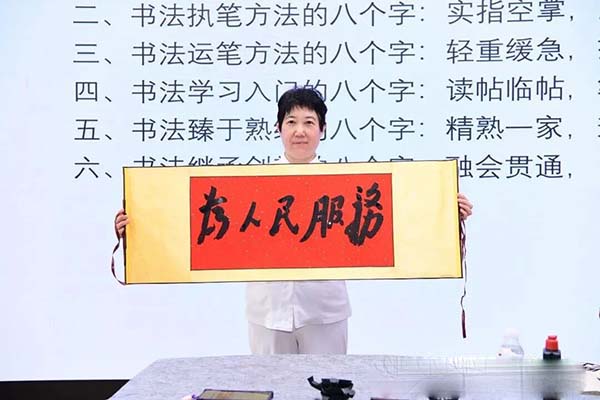 二、书法执笔方法的八个字：实指空掌，
三、书法运笔方法的八个字：轻重缓急，
四、书法学习入门的八个字：读帖临帖，
五、书法臻于熟练的八个字：精熟一家，
六、书法继承创的八个字：融会贯通，
为人民服務